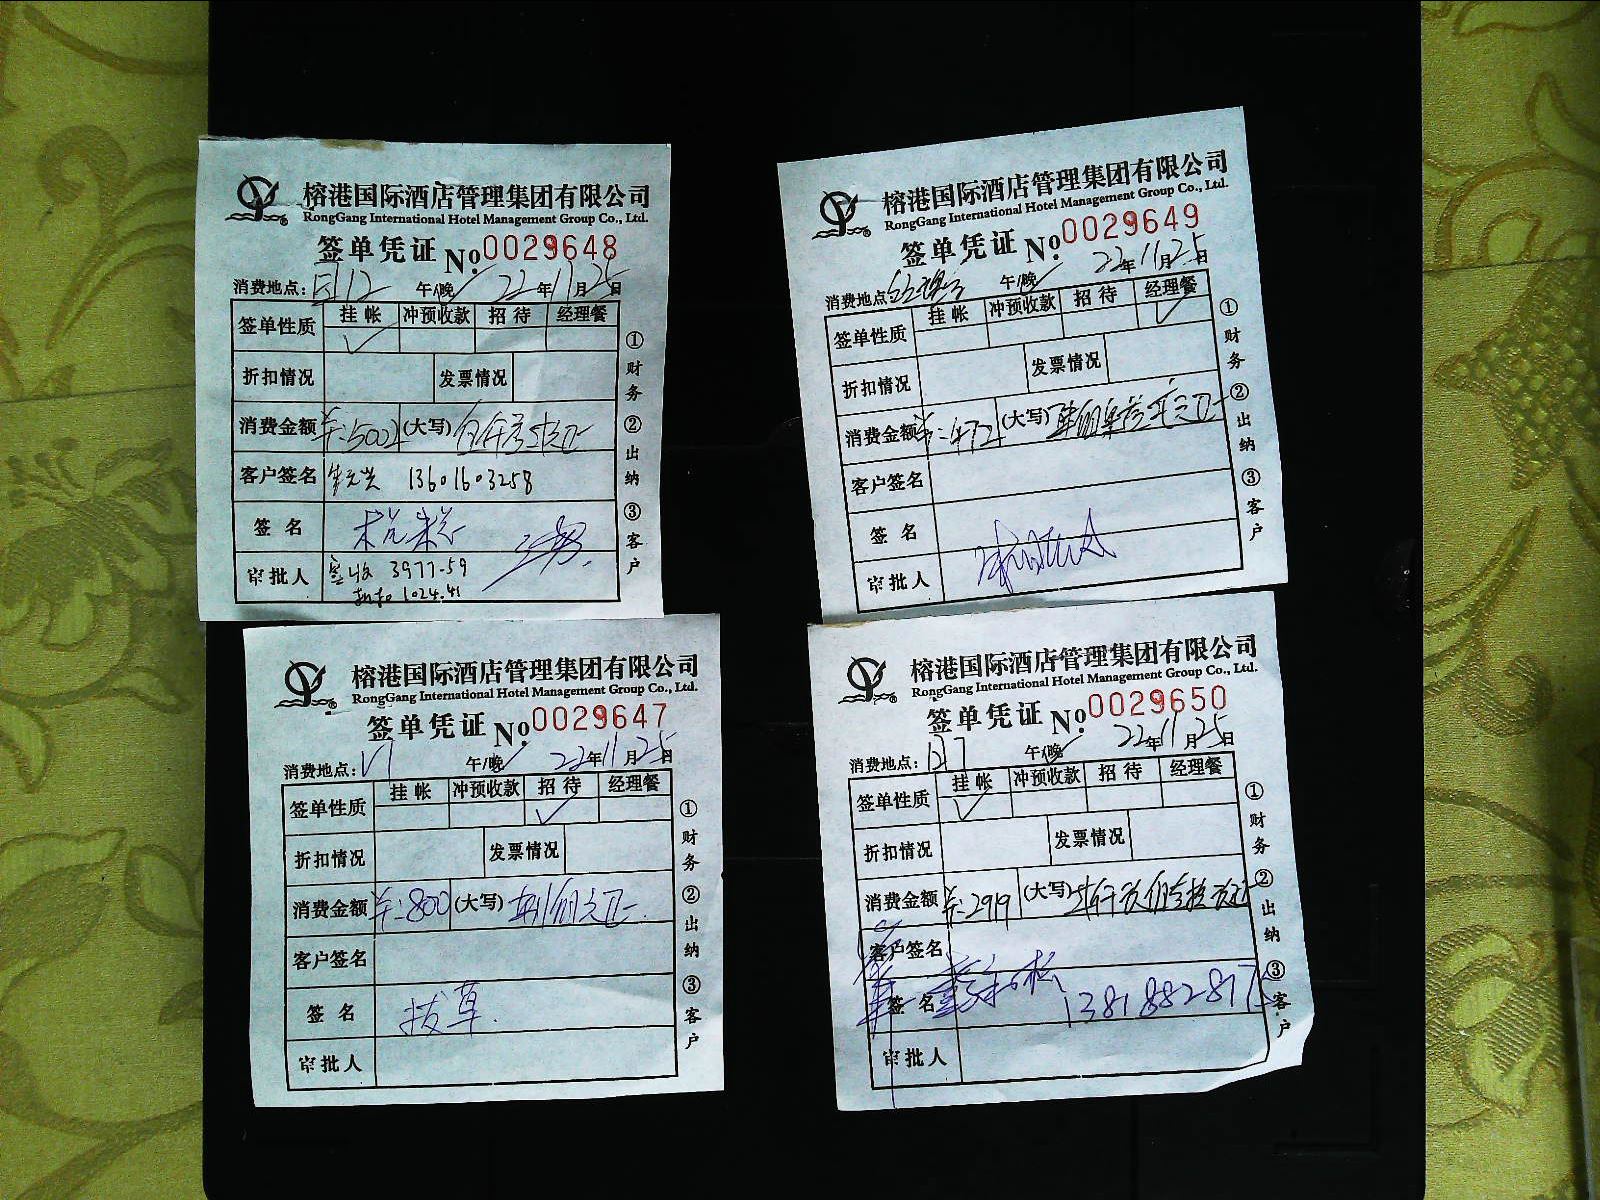 榕港国际酒店管理集团有限公司
RongGang International Hotel Management Group Co., Ltd.
签单凭证 No. 0029648
消费地点: 112 午/晚 22年11月25日
签单性质 挂帐 冲预收款 招待 经理餐
折扣情况 发票情况
消费金额 ¥:5002 (大写)
客户签名 13601603258
签名
审批人 实收 3977.59
折扣 1024.41
①财务 ②出纳 ③客户
榕港国际酒店管理集团有限公司
RongGang International Hotel Management Group Co., Ltd.
签单凭证 No. 0029649
消费地点: 午/晚 22年11月25日
签单性质 挂帐 冲预收款 招待 经理餐
折扣情况 发票情况
消费金额 ¥:472 (大写)
客户签名
签名
审批人
①财务 ②出纳 ③客户
榕港国际酒店管理集团有限公司
RongGang International Hotel Management Group Co., Ltd.
签单凭证 No. 0029647
消费地点: V1 午/晚 22年11月25日
签单性质 挂帐 冲预收款 招待 经理餐
折扣情况 发票情况
消费金额 ¥:800 (大写) 捌佰元正
客户签名
签名 拔草.
审批人
①财务 ②出纳 ③客户
榕港国际酒店管理集团有限公司
RongGang International Hotel Management Group Co., Ltd.
签单凭证 No. 0029650
消费地点: 午/晚 22年11月25日
签单性质 挂帐 冲预收款 招待 经理餐
折扣情况 发票情况
消费金额 ¥:2919 (大写)
客户签名
签名 13818828175
审批人
①财务 ②出纳 ③客户